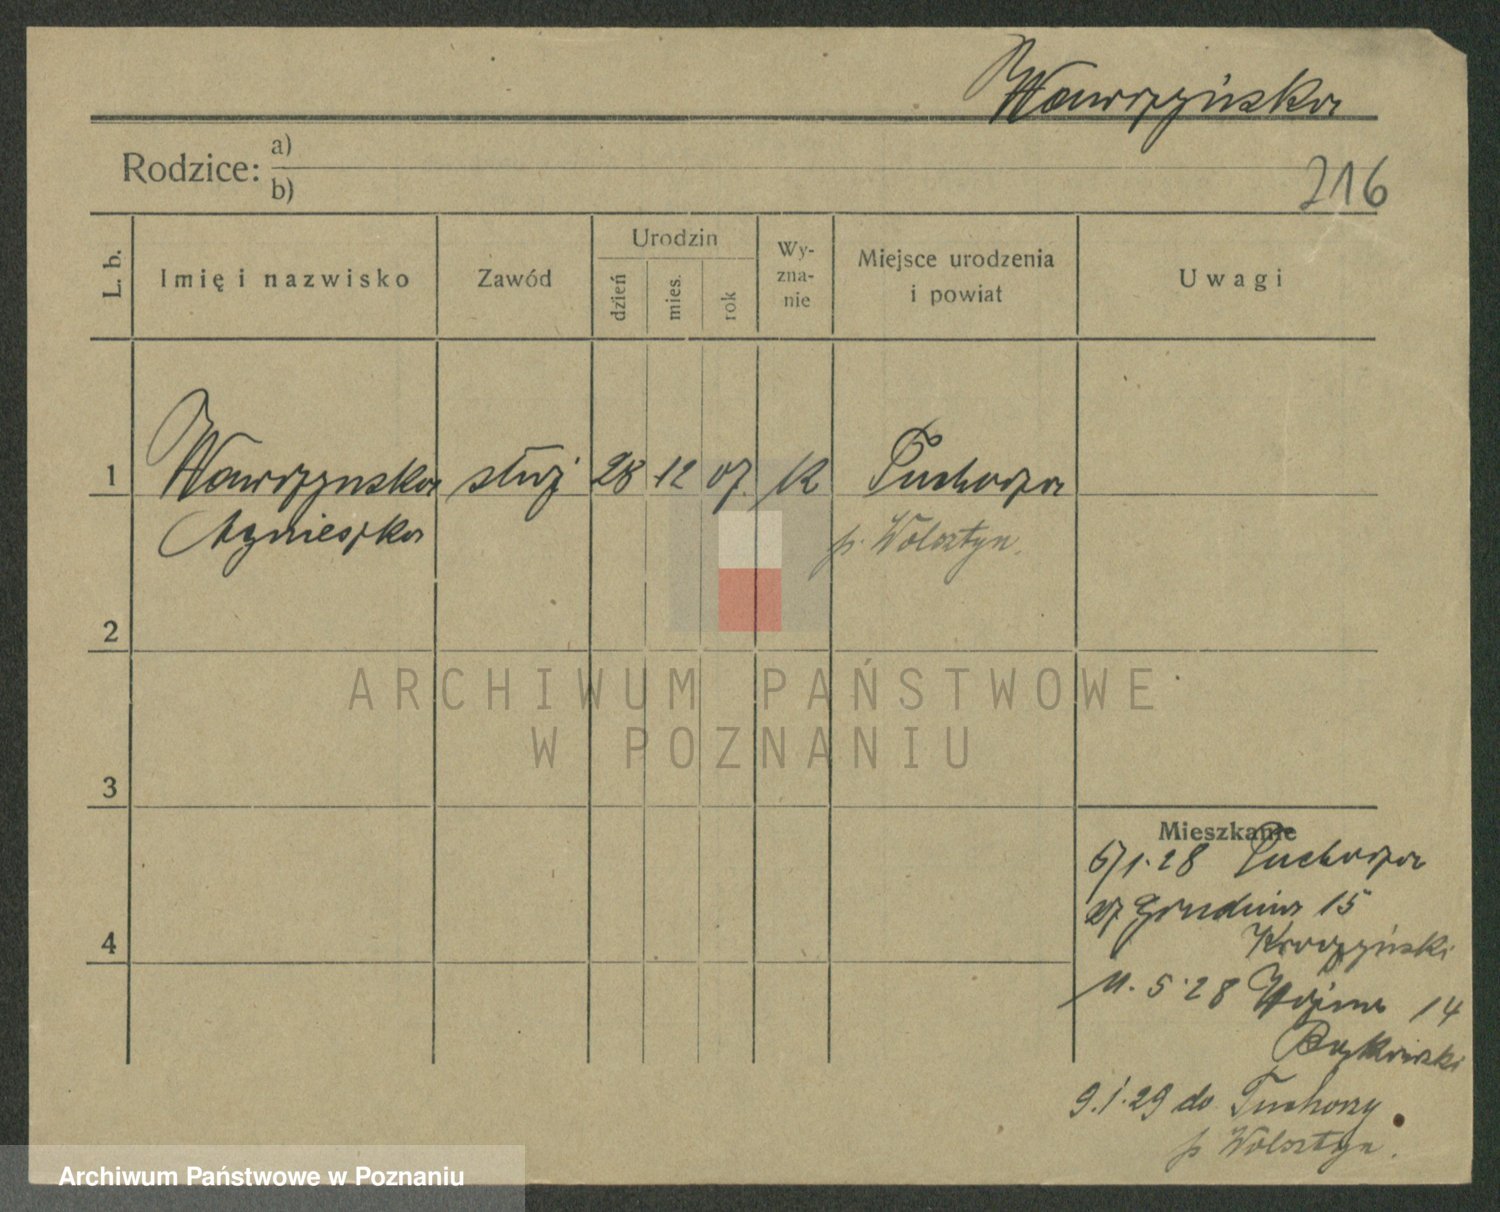 Wawrzyńska
Rodzice: a)
b)
216
L. b.
Imię i nazwisko
Zawód
Urodzin
dzień
mies.
rok
Wy-
zna-
nie
Miejsce urodzenia
i powiat
Uwagi
1 Wawrzynska służ 28 12 07 K Tuchorza
Agnieszka p. Wolsztyn.
2
3
4
ARCHIWUM PAŃSTWOWE
W POZNANIU
Mieszkanie
1.28 Tuchorza
Grudnia 15
11.5.28 14
9.1.29 do Tuchorzy
p. Wolsztyn.
Archiwum Państwowe w Poznaniu